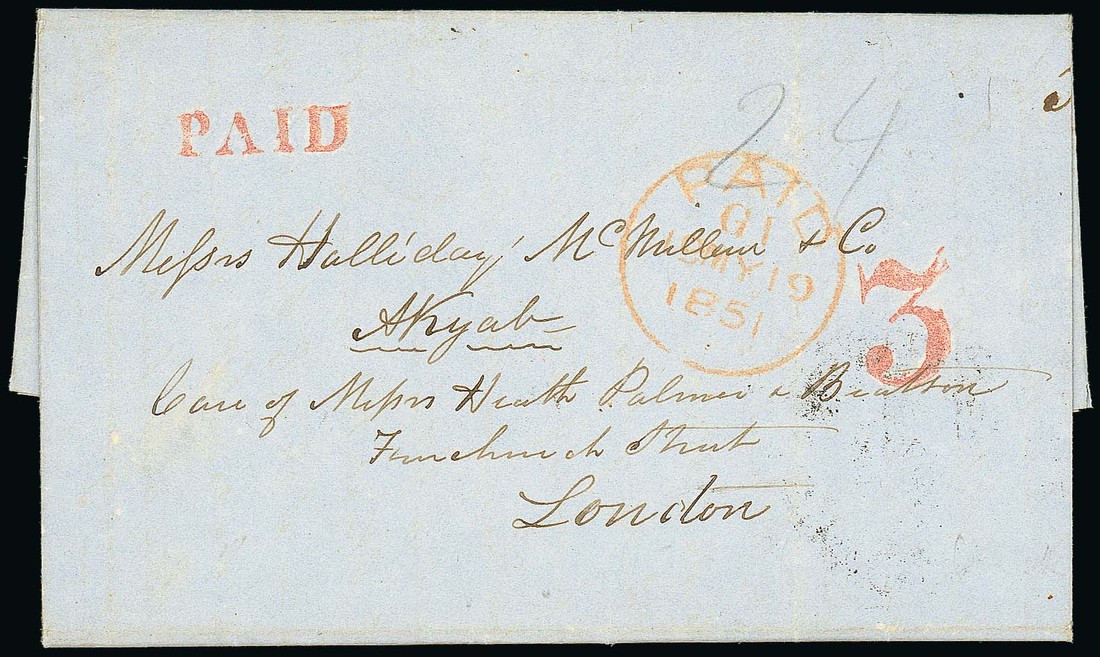 PAID
24
PAID
19 MY 19
1851
3
Messrs Halliday, McMillan & Co
Akyab
Care of Messrs Heath Palmer & Beatson
Fenchurch Street
London